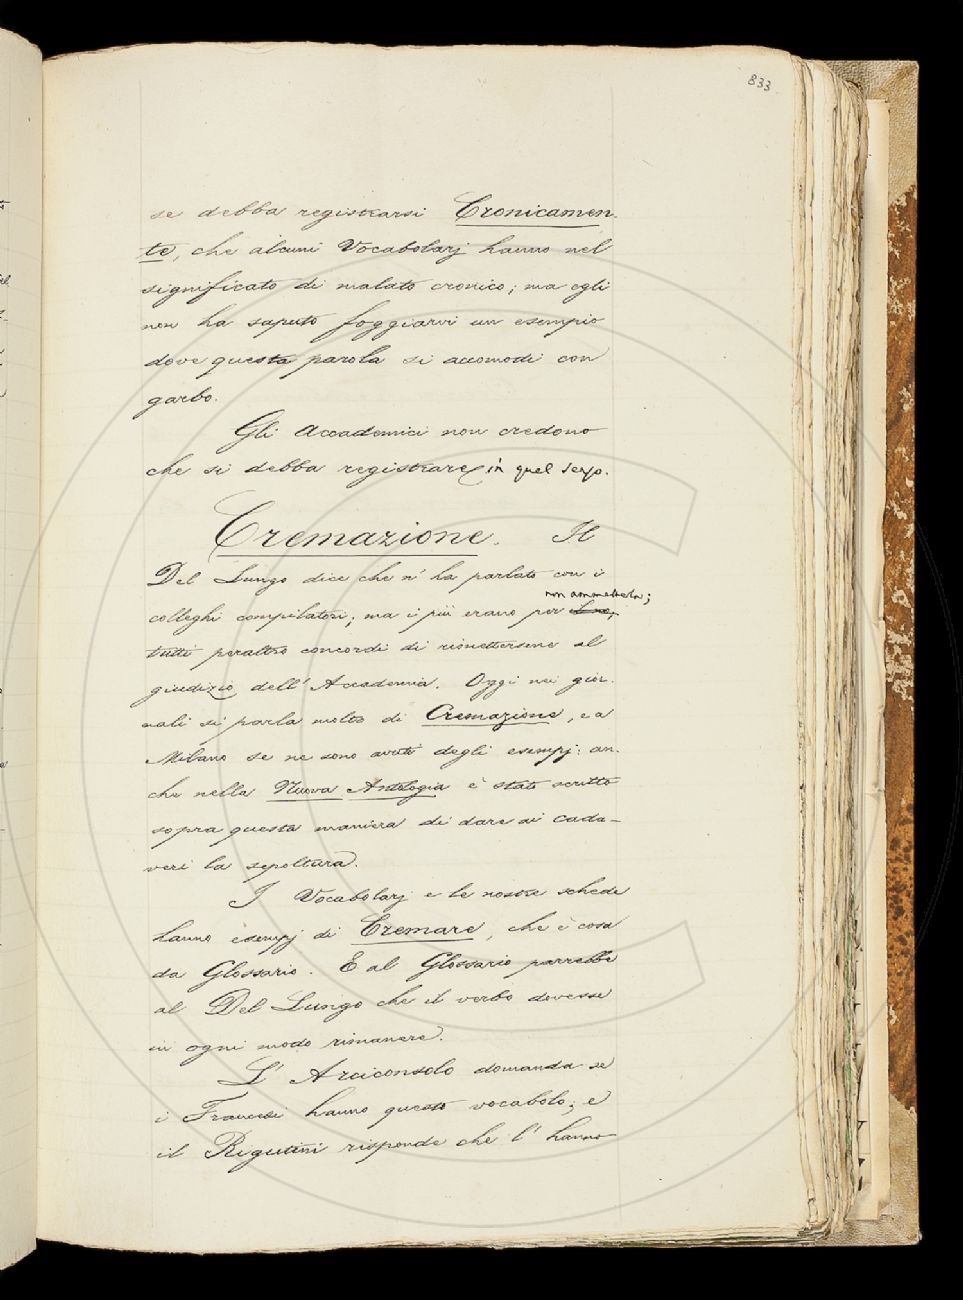 833
se debba registrarsi Cronicamen-
te, che alcuni Vocabolarj hanno nel
significato di malato cronico; ma egli
non ha saputo foggiarvi un esempio
dove questa parola si accomodi con
garbo.
Gli Accademici non credono
che si debba registrare in quel senso.
Cremazione. Il
Del Lungo dice che n' ha parlato con i
non ammetterla;
colleghi compilatori; ma i più erano per
tutti peraltro concordi di rimettersene al
giudizio dell' Accademia. Oggi nei gior-
nali si parla molto di Cremazione, e a
Milano se ne sono avuti degli esempj: an-
che nella Nuova Antologia è stato scritto
sopra questa maniera di dare ai cada-
veri la sepoltura.
I Vocabolarj e le nostre schede
hanno esempj di Cremare, che è cosa
da Glossario. E al Glossario parrebbe
al Del Lungo che il verbo dovesse
in ogni modo rimanere.
L' Arciconsolo domanda se
i Francesi hanno questo vocabolo; e
il Rigutini risponde che l' hanno